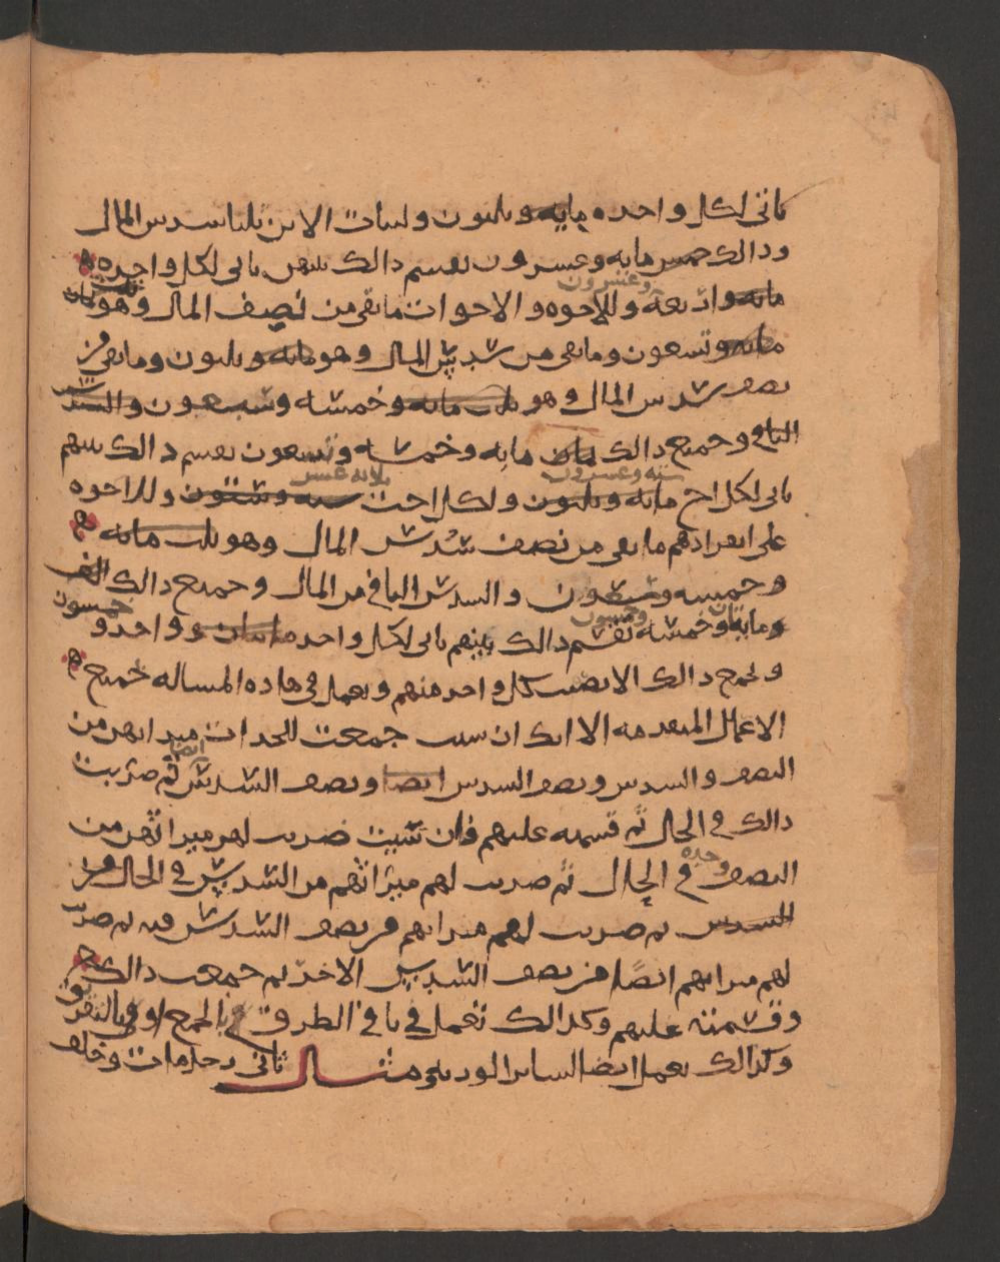 ياتي لكل واحده مايه وثلثون ولبنات الابن ثلثا سدس المال
وذالك خمس مايه وعشرون نقسم ذالك بينهن ياتي لكل واحده
مايه واربعه وعشرون وللاخوه والاخوات مابقي من نصف المال وهو
مايه وتسعون ومابقي من سدس المال وهو مايه وثلثون ومابقي من
نصف سدس المال وهو ثلث مايه وخمسه وسبعون والسدس
الباقي وجميع ذالك مايه وخمسه وتسعون نقسم ذالك بينهم
ياتي لكل اخ مايه وثلثون سته وعشرون ولكل اخت سته وستون ثلاثه عشر وللاخوه
على انفرادهم مابقي من نصف سدس المال وهو ثلث مايه
وخمسه وسبعون والسدس الباقي من المال وجميع ذالك الف
ومايه وخمسه وخمسون نقسم ذالك بينهم ياتي لكل واحد مايتان وواحد وخمسون
وتجمع ذالك الا نصيب كل واحد منهم ويعمل في هاذه المساله جميع
الاعمال المتقدمه الا انك ان شيت جمعت للجدات ميراثهن من
النصف والسدس ونصف السدس ايضا ونصف السدس ايضا ثم ضربت
ذالك في الحال ثم قسمته عليهم فان شيت ضربت لهم ميراثهن من
النصف وحده في الحال ثم ضربت لهم ميراثهم من السدس في الحال من
السدس ثم ضربت لهم ميراثهم من نصف السدس فيه ثم ضربت
لهم ميراثهم ايضا من نصف السدس الاخر ثم جمعت ذالك
وقسمته عليهم وكذالك تعمل في باقي الطرق في الجمع او في التفريق
وكذالك يعمل ايضا لساير الورثه مثـال ثاني رجل مات وخلف